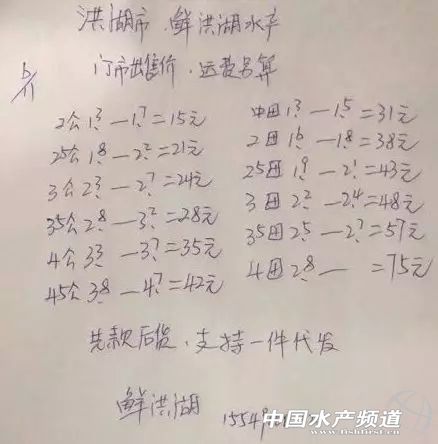 洪湖市.鲜洪湖水产
门市出售价.运费另算
2公 1.3—1.7=15元
25公 1.8—2.2=21元
3公 2.3—2.7=24元
35公 2.8—3.2=28元
4公 3.3—3.7=35元
45公 3.8—4.7=42元
中母 1.3—1.5=31元
2母 1.6—1.8=38元
25母 1.9—2.1=43元
3母 2.2—2.4=48元
35母 2.5—2.7=57元
4母 2.8— =75元
先款后货.支持一件代发
鲜洪湖
中国水产频道
www.fishfirst.cn